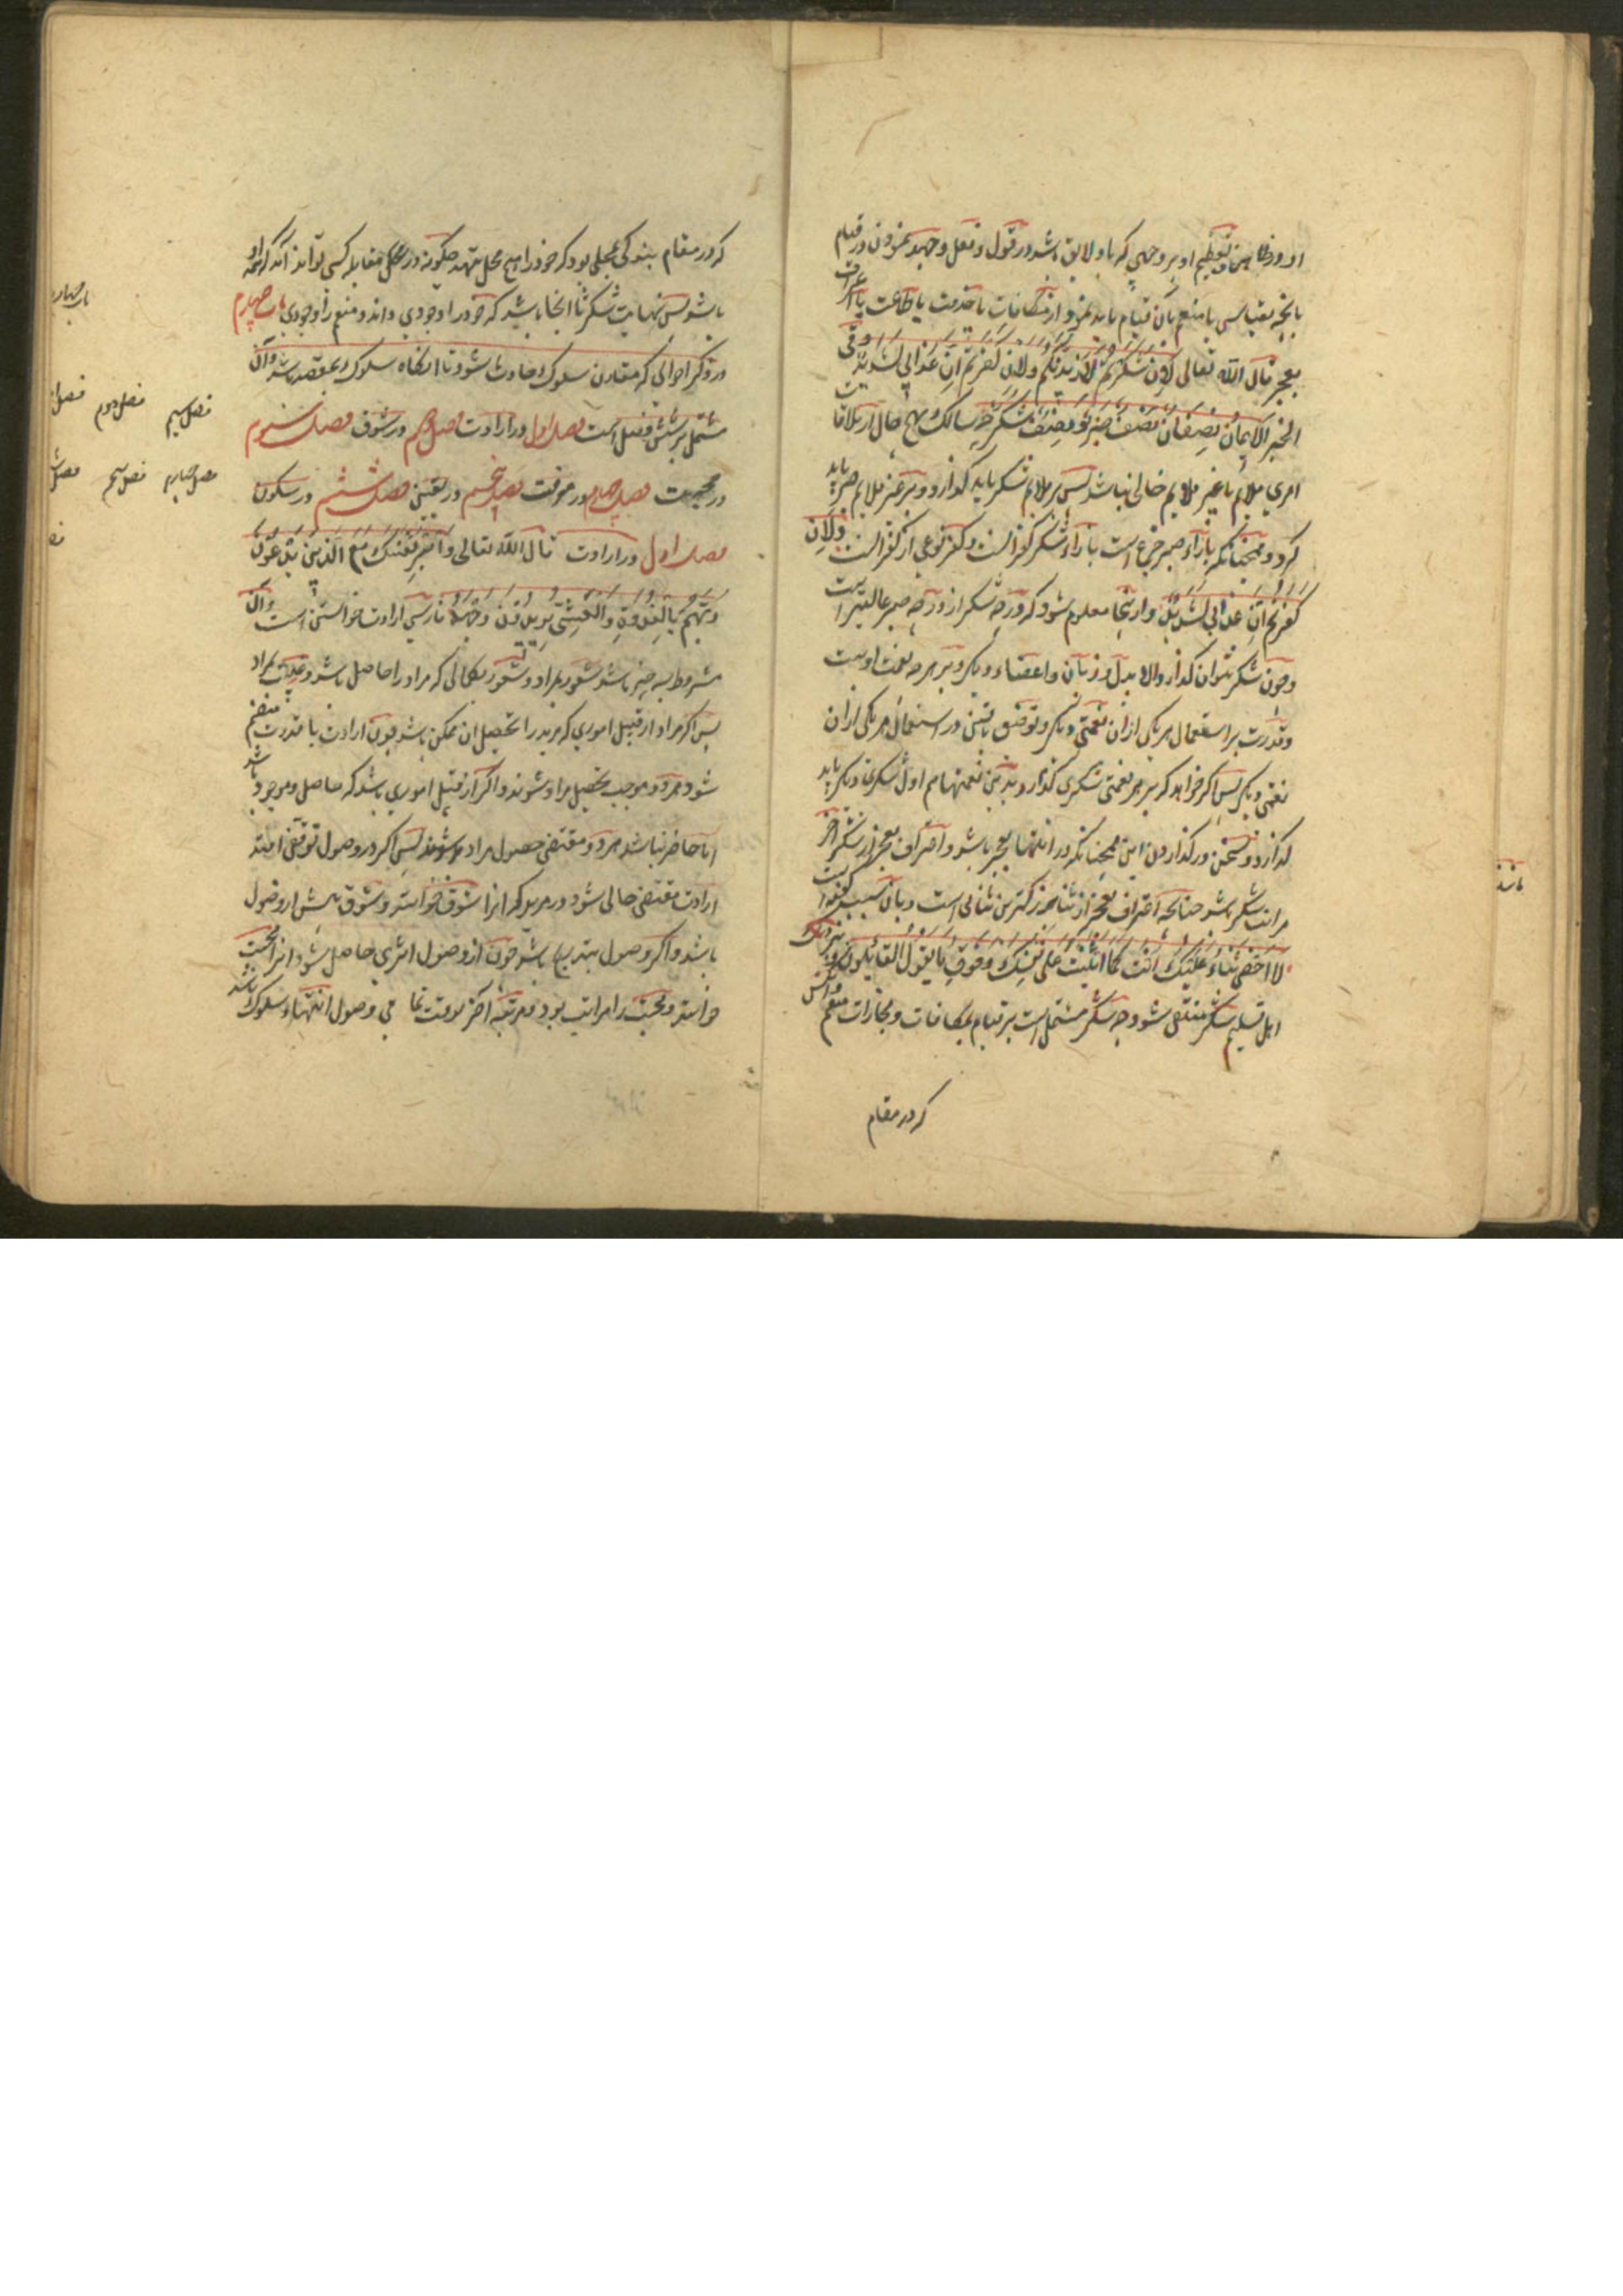 او در ظاهر و تعظیم او بر وجهی که باو لایق باشد در قول و فعل و جهد نمودن در قیام
بآنچه بقیاس با منعم بآن قیام باید نمود از مکافات یا خدمت یا طاعت یا اعتراف
بعجز قال الله تعالی لَئِن شَکَرتُم لَاَزیدَنَّکُم ولئن کفرتم اِنَّ عذابی لشدید و فی
الخبر الایمان نصفان نصف صبر و نصف شکر چه سالک بهیچ حال از ملاقات
امری ملایم یا غیر ملایم خالی نباشد پس بر ملایم شکر باید گذارد و بر غیر ملایم صبر باید
کرد و همچنانکه بازاء صبر جزع است بازاء شکر کفرانست و کفر نوعی از کفرانست ولئن
کفرتم اِنَّ عذابی لشدید و از اینجا معلوم شود که درجه شکر از درجه صبر عالیتر است
و چون شکر نتوان گذارد الا بدل و زبان و اعضاء دیگر و بر هر چه نعمت اوست
و قدرت بر استعمال هر یکی از آن نعمتی دیگر و توفیق یافتن در استعمال هر یکی از آن
نعمتی دیگر پس اگر خواهد که بر هر نعمتی شکری گذارد بدین نعمتها هم اول شکری دیگر باید
گذارد و سخن در گذاردن این همچنانکه در انتها بعجز باشد و اعتراف بعجز از شکر آخر
مراتب شکر باشد چنانکه اعتراف بعجز از ثنا بزرگترین ثنائی است و بآن سبب گفته‌اند
لا احصی ثناء علیک انت کما اثنیت علی نفسک و فوق ما یقول القائلون و نزدیک
اهل تسلیم شکر منتفی شود چه شکر مشتمل است بر قیام بمکافات و مجازات منعم و آن کس
که در مقام
که در مقام بندگی بجایی بود که خود را هیچ محل ننهد چگونه در محل مقابله کسی تواند آمد که همه او
باشد پس نهایت شکر تا آنجا باشد که خود را وجودی داند و منعم را وجودی باب چهارم
در ذکر احوالی که مقارن سلوک حادث شود تا آنگاه سلوک بمقصد باشد و آن
مشتمل بر شش فصل است فصل اول در ارادت فصل دوم در شوق فصل سیوم
در محبت فصل چهارم در معرفت فصل پنجم در یقین فصل ششم در سکون
فصل اول در ارادت قال الله تعالی واصبر نفسک مع الذین یدعون
ربهم بالغدوة والعشی یریدون وجهه پارسی ارادت خواستن است و آن
مشروط بسه چیز باشد شعور بمراد و شعور بکمالی که مراد را حاصل باشد و غیبت مراد
پس اگر مراد از قبیل اموری که مرید را تحصیل آن ممکن باشد چون ارادت با قدرت منضم
شود هر دو موجب تحصیل مراد شوند و اگر از قبیل اموری باشد که حاصل و موجود باشد
اما حاضر نباشد هر دو مقتضی حصول مراد شوند پس اگر در وصول توقفی افتد
ارادت مقتضی حالی شود در مرید که آنرا شوق خوانند و شوق پیش از وصول
باشد و اگر وصول بتدریج باشد چون از وصول اثری حاصل شود آنرا محبت
خوانند و محبت را مراتب بود و مرتبه آخر بوقت تمامی وصول و انتهاء سلوک باشد
باب چهارم
فصل دوم
فصل سیم
فصل چهارم
فصل پنجم